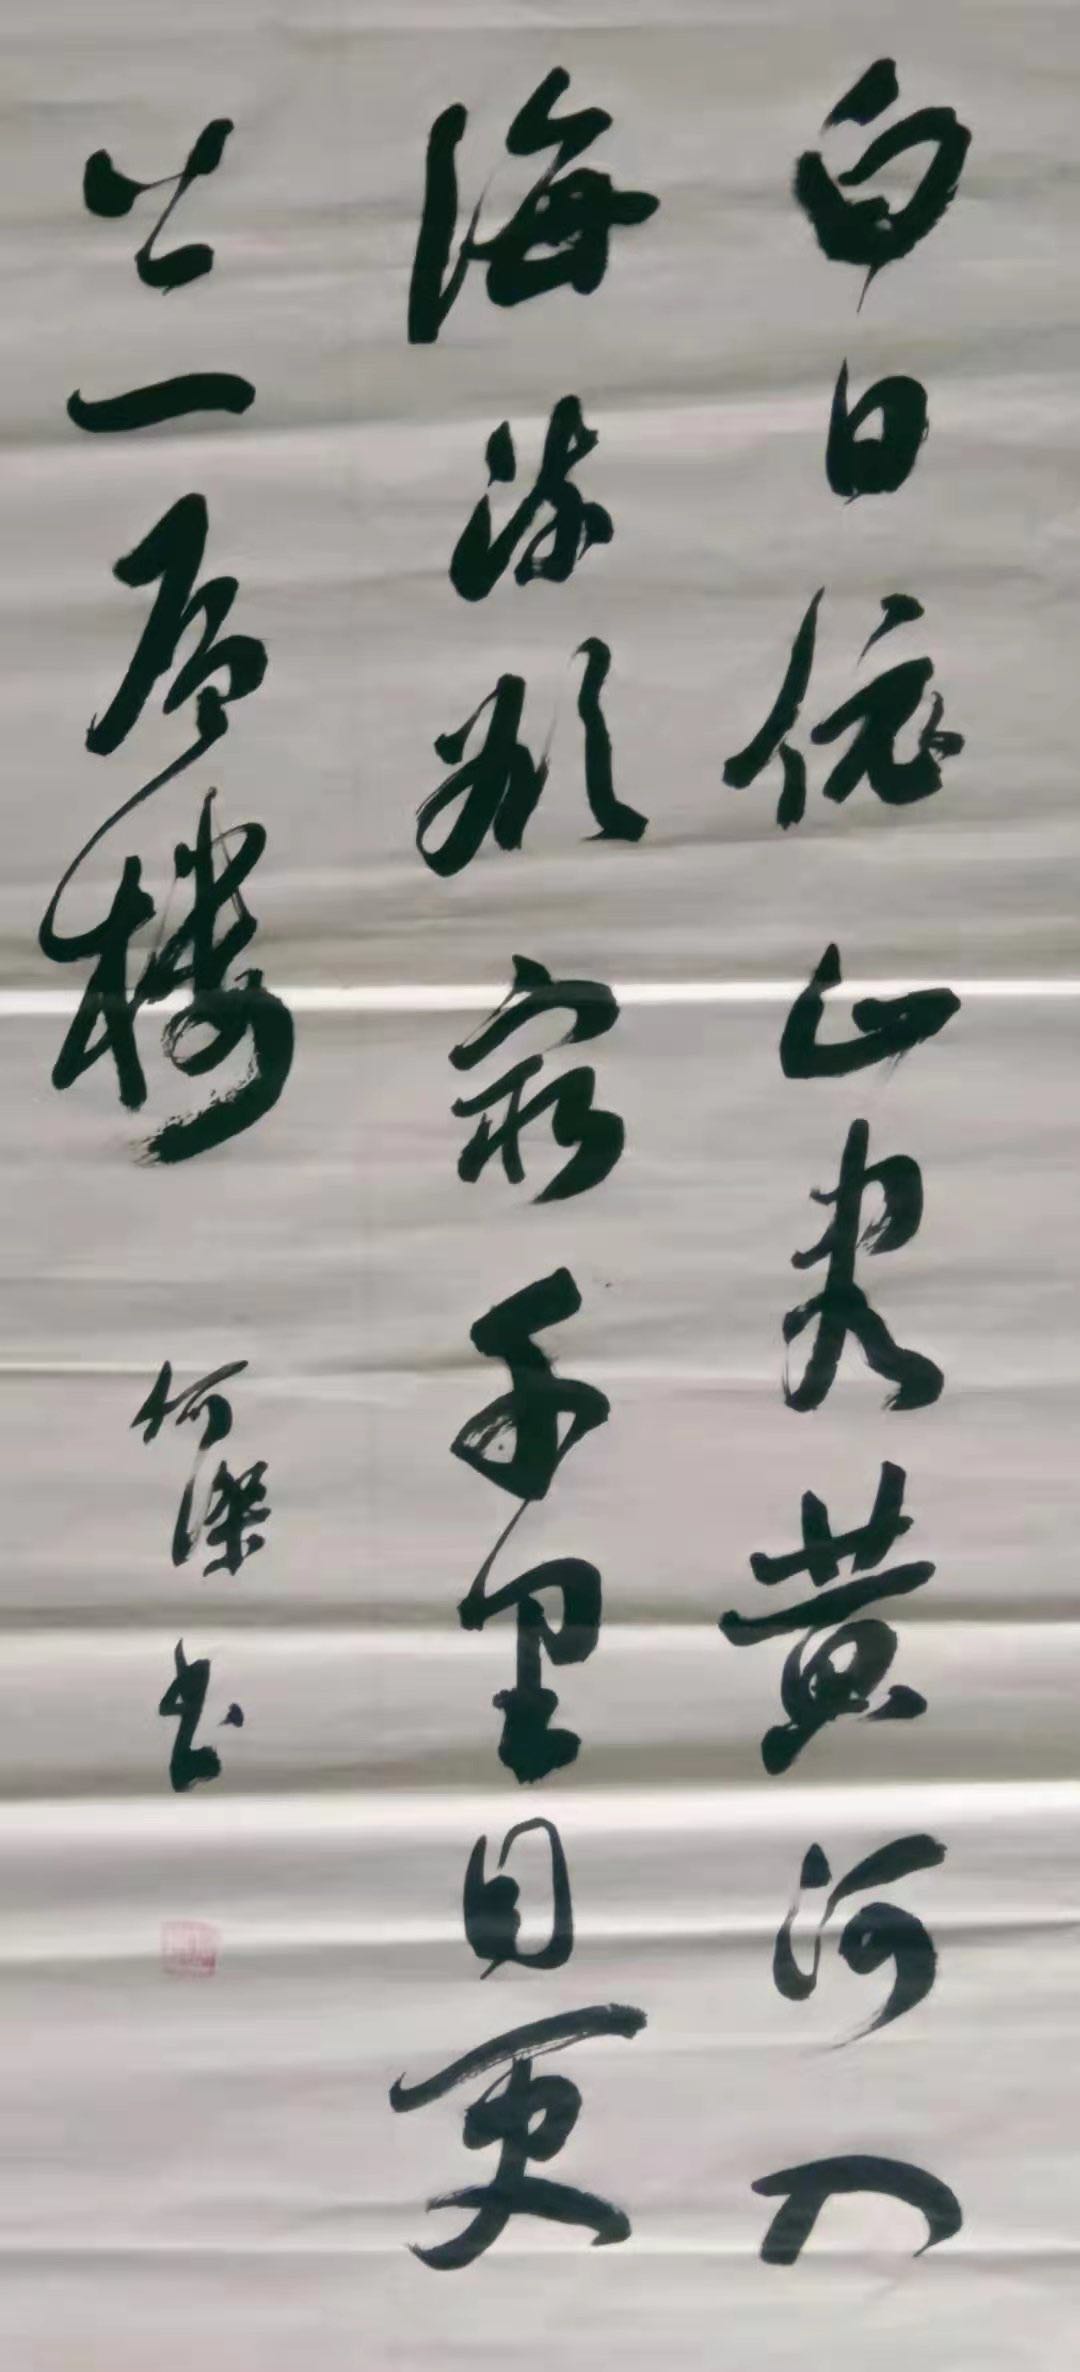 白日依山尽黄河入
海流欲穷千里目更
上一层楼
何杰书